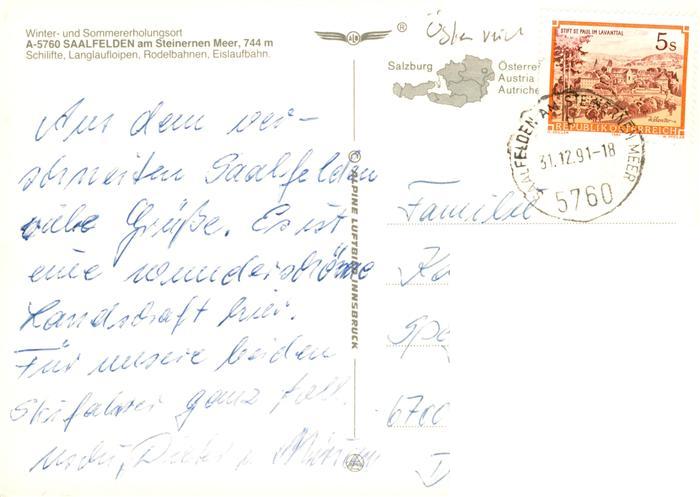 Winter- und Sommererholungsort
A-5760 SAALFELDEN am Steinernen Meer, 744 m
Schilifte, Langlaufloipen, Rodelbahnen, Eislaufbahn.
ALB
®
Österreich
Salzburg
Österre
Austria
Autriche
STIFT ST. PAUL IM LAVANTTAL
5s
REPUBLIK ÖSTERREICH
SAALFELDEN AM STEINERNEN MEER
31.12.91-18
5760
Aus dem ver-
schneiten Saalfelden
viele Grüße. Es ist
eine wunderschöne
Landschaft hier.
Für unsere beiden
Skifahrer ganz toll.
Dieter u.
© ALPINE LUFTBILD INNSBRUCK
Familie
Ka
Spe
6700